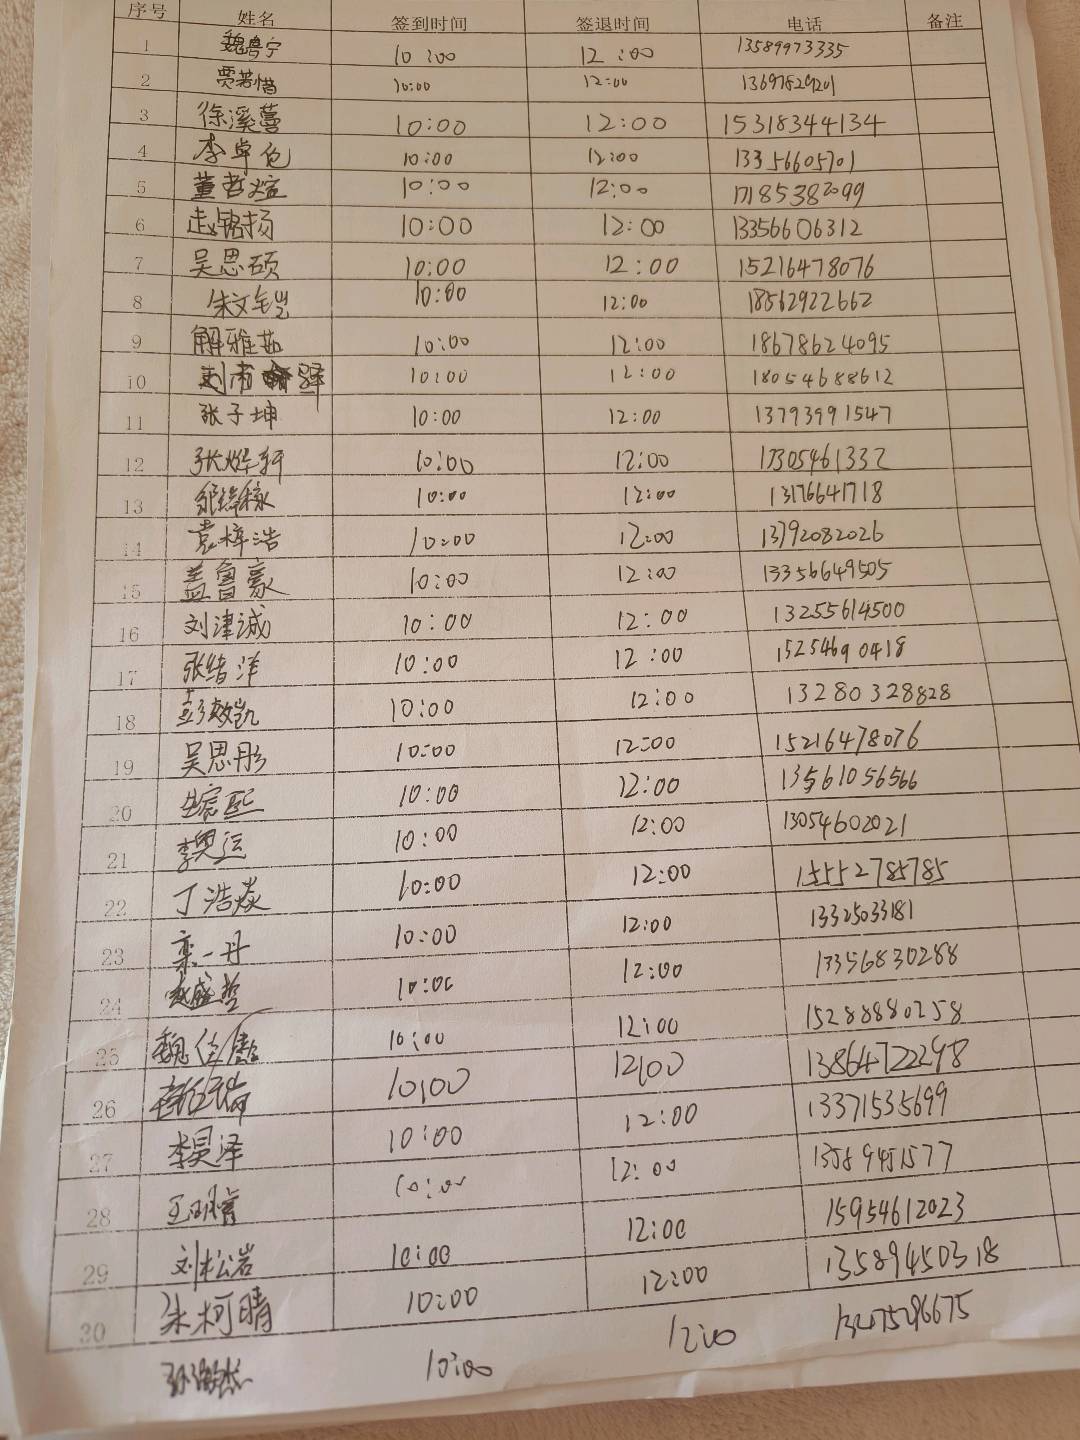 序号 姓名 签到时间 签退时间 电话 备注
1 魏鲁宁 10:00 12:00 13589973335
2 贾若惜 10:00 12:00 13697829201
3 徐溪蔓 10:00 12:00 15318344134
4 李卓伦 10:00 12:00 13356605701
5 董哲煊 10:00 12:00 17185382099
6 赵铭扬 10:00 12:00 13356606312
7 吴思硕 10:00 12:00 15216478076
8 朱文铠 10:00 12:00 18562922662
9 解雅茹 10:00 12:00 18678624095
10 10:00 12:00 18054688612
11 张子坤 10:00 12:00 13793991547
12 张烨轩 10:00 12:00 17305461332
13 10:00 12:00 13176641718
14 袁梓浩 10:00 12:00 13792082026
15 盖鲁豪 10:00 12:00 13356649505
16 刘津诚 10:00 12:00 13255614500
17 张绪洋 10:00 12:00 15254690418
18 彭效凯 10:00 12:00 13280328828
19 吴思彤 10:00 12:00 15216478076
20 10:00 12:00 13561056566
21 李奥运 10:00 12:00 13054602021
22 丁浩焱 10:00 12:00 15552785785
23 栾一丹 10:00 12:00 13325033181
24 10:00 12:00 13356830288
25 10:00 12:00 15288880258
26 10:00 12:00 13864722298
27 李昊泽 10:00 12:00 13371535699
28 10:00 12:00 13589451577
29 刘松岩 10:00 12:00 15954612023
30 朱柯晴 10:00 12:00 13589450318
10:00 12:00